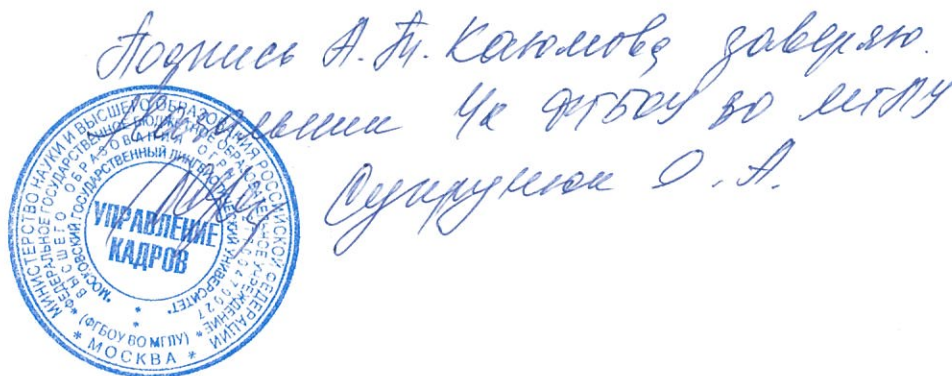 Подпись А.Т. Каюмова заверяю.
Начальник УК ФГБОУ ВО МГЛУ
Супрунюк О.А.
* МИНИСТЕРСТВО НАУКИ И ВЫСШЕГО ОБРАЗОВАНИЯ РОССИЙСКОЙ ФЕДЕРАЦИИ * МОСКВА
* ФЕДЕРАЛЬНОЕ ГОСУДАРСТВЕННОЕ БЮДЖЕТНОЕ ОБРАЗОВАТЕЛЬНОЕ УЧРЕЖДЕНИЕ * (ФГБОУ ВО МГЛУ)
ВЫСШЕГО ОБРАЗОВАНИЯ
"МОСКОВСКИЙ ГОСУДАРСТВЕННЫЙ ЛИНГВИСТИЧЕСКИЙ УНИВЕРСИТЕТ"
УПРАВЛЕНИЕ
КАДРОВ